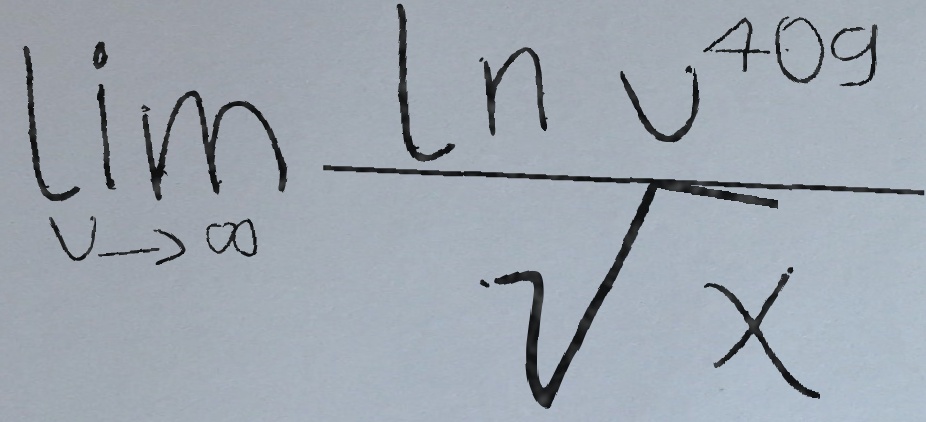 \lim_{v \to \infty} \frac{\ln v^{409}}{\sqrt{x}}